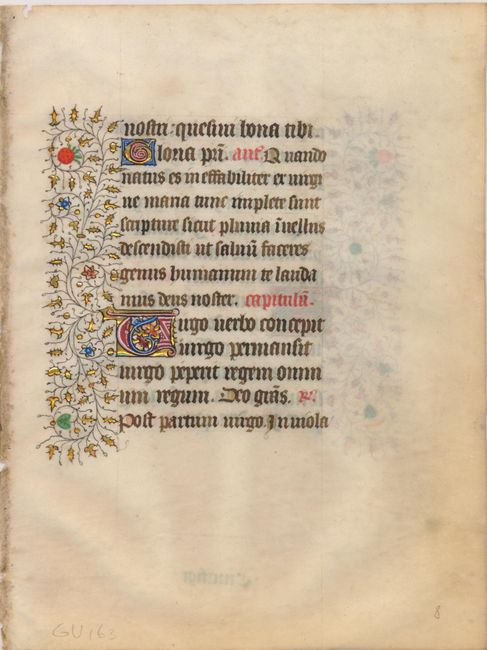 nostri: quesiui bona tibi.
Gloria pri. ant. Quando
natus es ineffabiliter ex uirgi
ne maria tunc implete sunt
scripture sicut pluuia i uellus
descendisti ut saluu faceres
genus humanum te lauda
mus deus noster. capitulu.
Uirgo uerbo concepit
uirgo permansit
uirgo peperit regem omni
um regum. Deo gras. R.
Post partum uirgo. Inuiola
GU163
8